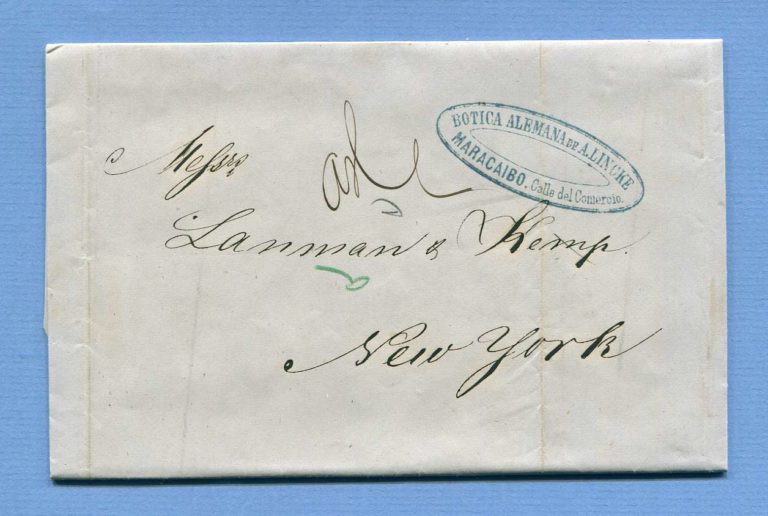 BOTICA ALEMANA DE A. LINCKE
MARACAIBO. Calle del Comercio.
Messrs
Lanman & Kemp.
New York